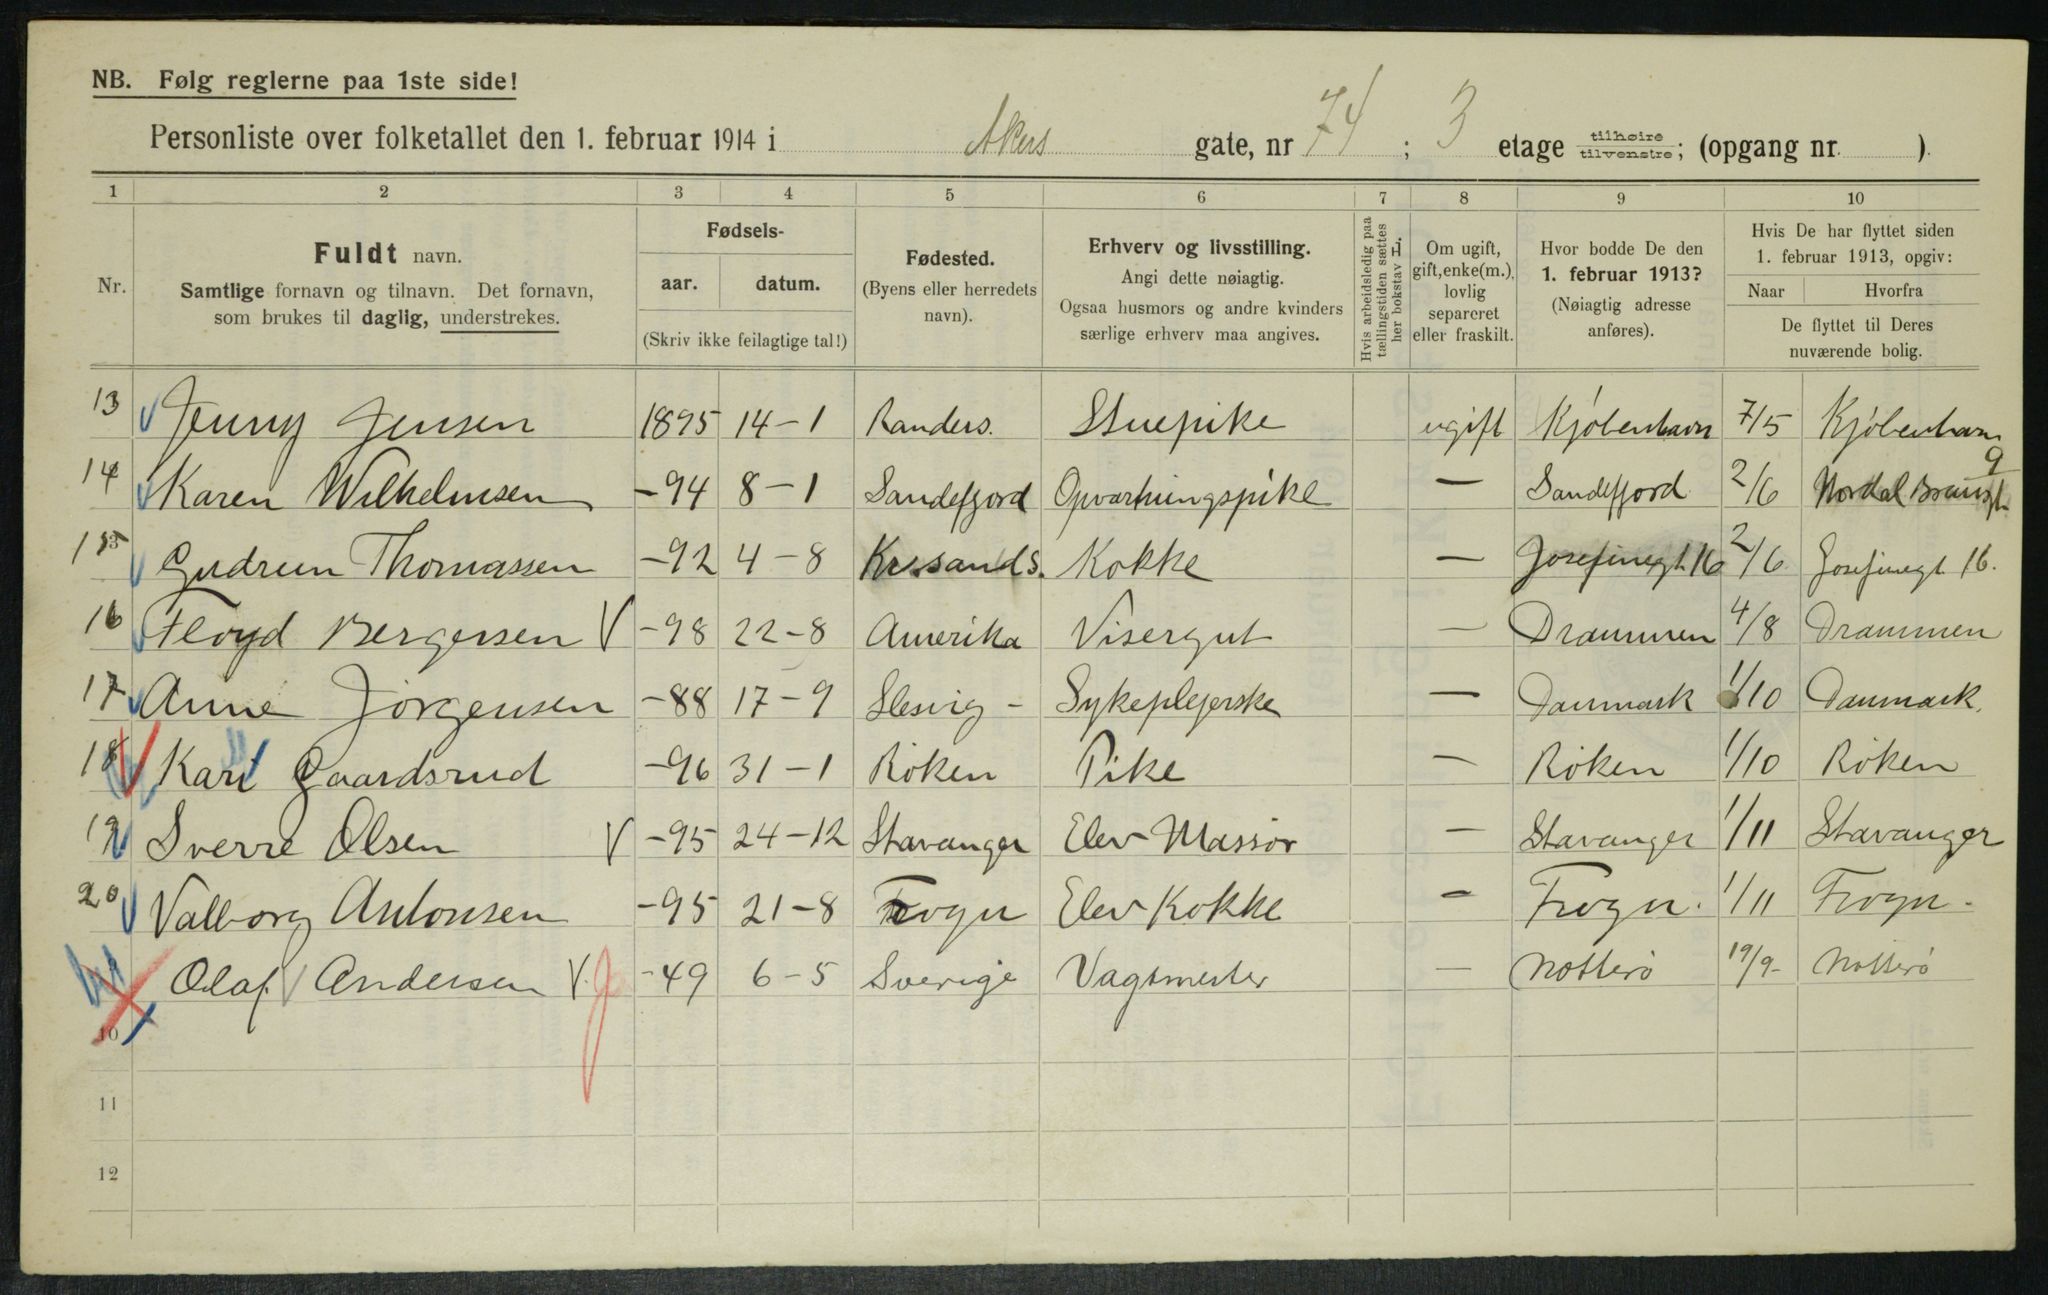 NB. Følg reglerne paa 1ste side!
Personliste over folketallet den 1. februar 1914 i Akers gate, nr 74; 3 etage tilhøire tilvenstre; (opgang nr. ).
1 2 3 4 5 6 7 8 9 10
Nr.
Fuldt navn.
Samtlige fornavn og tilnavn. Det fornavn,
som brukes til daglig, understrekes.
Fødsels-
aar. datum.
(Skriv ikke feilagtige tal!)
Fødested.
(Byens eller herredets
navn).
Erhverv og livsstilling.
Angi dette nøiagtig.
Ogsaa husmors og andre kvinders
særlige erhverv maa angives.
Hvis arbeidsledig paa
tællingstiden sættes
her bokstav L
Om ugift,
gift, enke(m.),
lovlig
separeret
eller fraskilt.
Hvor bodde De den
1. februar 1913?
(Nøiagtig adresse
anføres).
Hvis De har flyttet siden
1. februar 1913, opgiv:
Naar Hvorfra
De flyttet til Deres
nuværende bolig.
13 Jenny Jensen 1895 14-1 Randers. Stuepike ugift Kjøbenhavn 7/5 Kjøbenhavn
14 Karen Wilhelmsen -94 8-1 Sandefjord Opvartningspike — Sandefjord 2/6 Nordal Brunsgt. 9
15 Gudrun Thomassen -92 4-8 Kr.sands. Kokke — Josefinegt. 16 2/6 Josefinegt. 16.
16 Floyd Bergersen V -98 22-8 Amerika Visergut — Drammen 4/8 Drammen
17 Anne Jörgensen -88 17-9 Slesvig - Sykeplejerske — Danmark 1/10 Danmark.
18 Kari Gaardsrud -96 31-1 Röken Pike — Röken 1/10 Röken
19 Sverre Olsen V -95 24-12 Stavanger Elev Massör — Stavanger 1/11 Stavanger
20 Valborg Antonsen -95 21-8 Frogn Elev Kokke — Frogn. 1/11 Frogn.
Olaf Andersen V. -49 6-5 Sverige Vagtmester — Nötterö 19/9- Nötterö
10
11
12